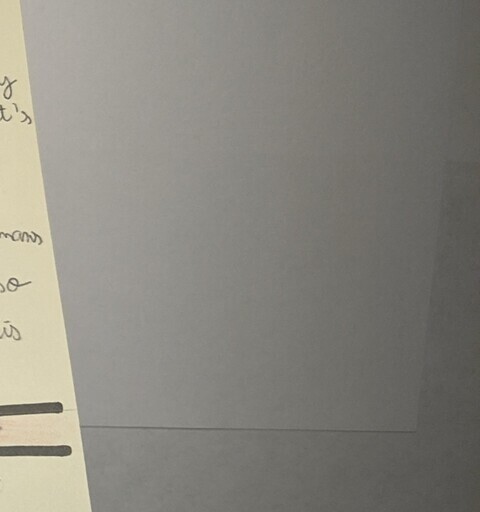 y
t's
mans
so
is